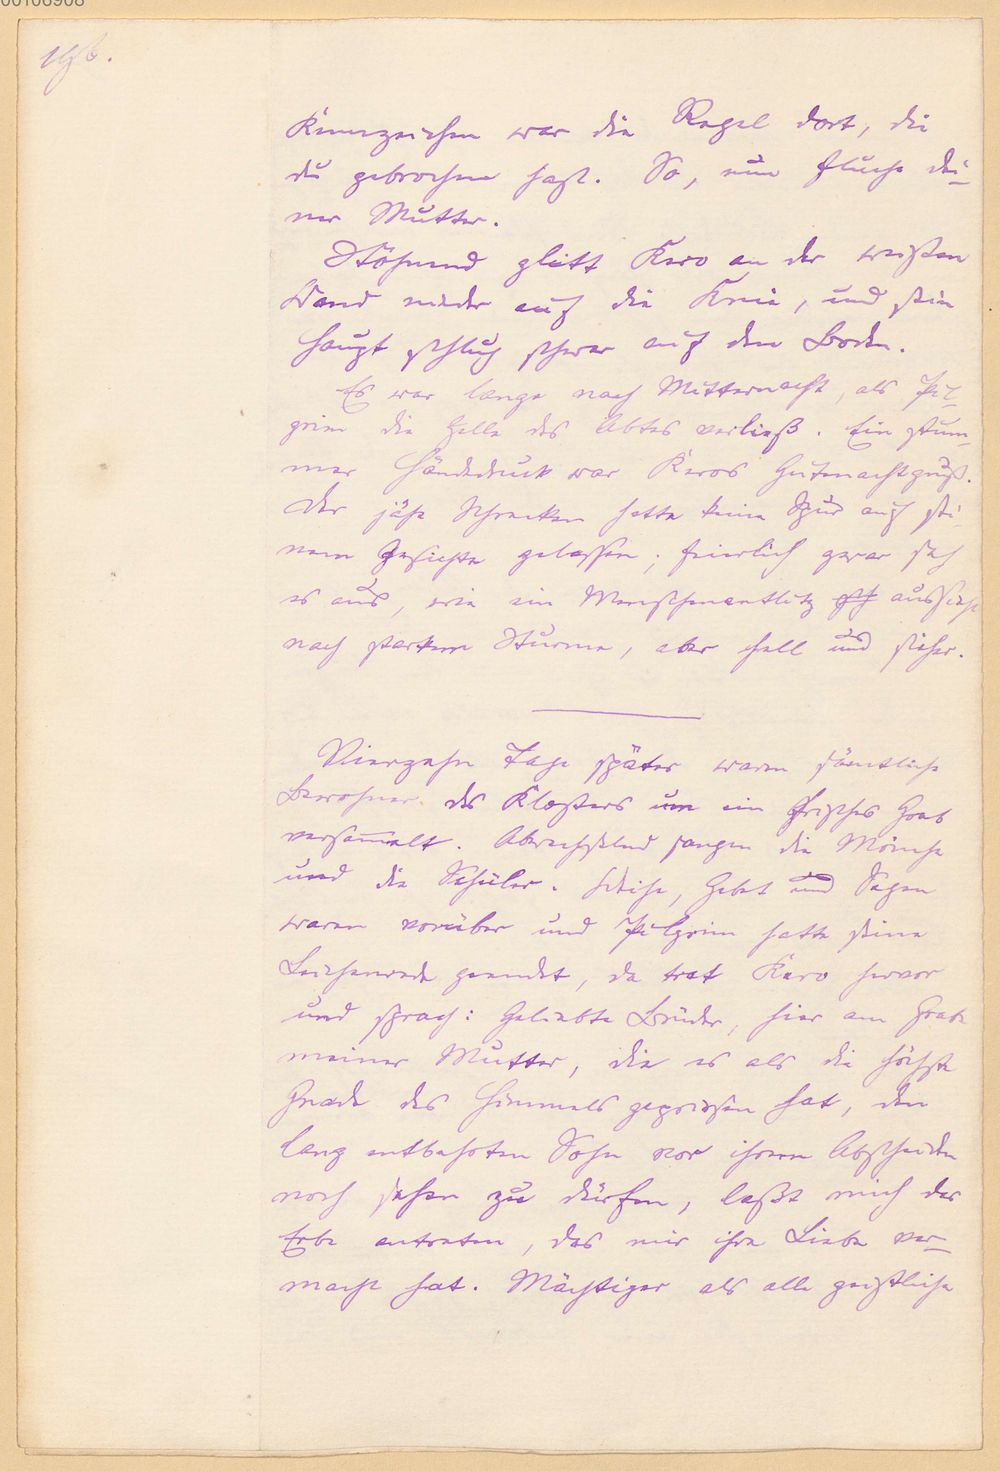 00106908
Kennzeichen war die Regel dort, die
du gebrochen hast. So, nun fluche dei-
ner Mutter.
Stöhnend glitt Kero an der weißen
Wand nieder auf die Knie, und sein
Haupt schlug schwer auf den Boden.
Es war lange nach Mitternacht, als Pil-
grim die Zelle des Abtes verließ. Ein stum-
mer Händedruck war Keros Gutenachtgruß.
Der jähe Schrecken hatte keine Spur auf sei-
nem Gesichte gelassen; feierlich zwar sah
es aus, wie ein Menschenantlitz aussieht
nach starkem Sturme, aber hell und sicher.
Vierzehn Tage später waren sämtliche
Bewohner des Klosters um ein frisches Grab
versammelt. Abwechselnd sangen die Mönche
und die Schüler. Weihe, Gebet und Segen
waren vorüber und Pilgrim hatte seine
Leichenrede geendet, da trat Kero hervor
und sprach: Geliebte Brüder, hier am Grabe
meiner Mutter, die es als die höchste
Gnade des Himmels gepriesen hat, den
lang entbehrten Sohn vor ihrem Abscheiden
noch sehen zu dürfen, laßt mich das
Erbe antreten, das mir ihre Liebe ver-
macht hat. Mächtiger als alle geistliche